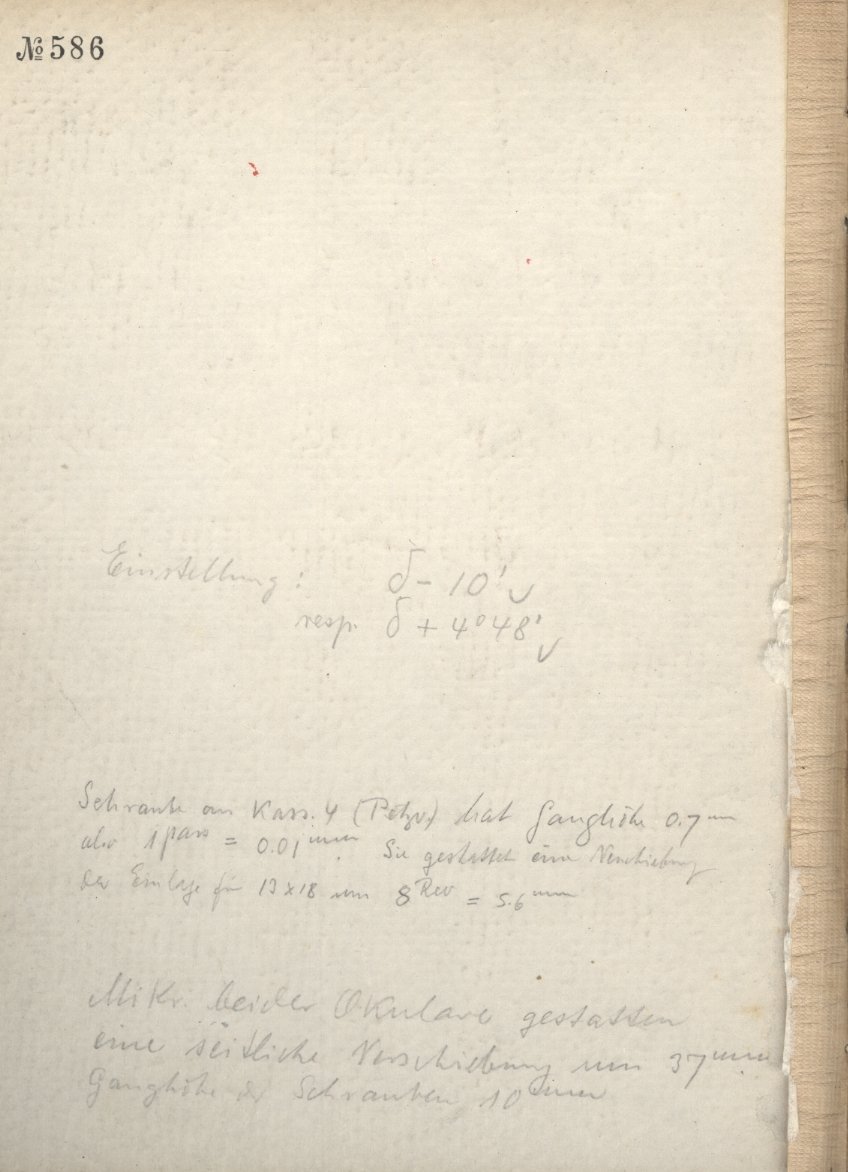 № 586
Einstellung: δ - 10'
resp. δ + 4° 48'
Schraube an Kass. 4 (Petzv.) hat Ganghöhe 0.7 mm
also 1 pars = 0.01 mm. Sie gestattet eine Verschiebung
der Einlage für 13 x 18 um 8 Rev = 5.6 mm
Mikr. beider Okulare gestatten
eine seitliche Verschiebung um 37 mm
Ganghöhe der Schrauben 10 mm